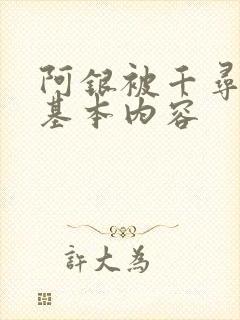 阿银被千尋
基本内容
許大為